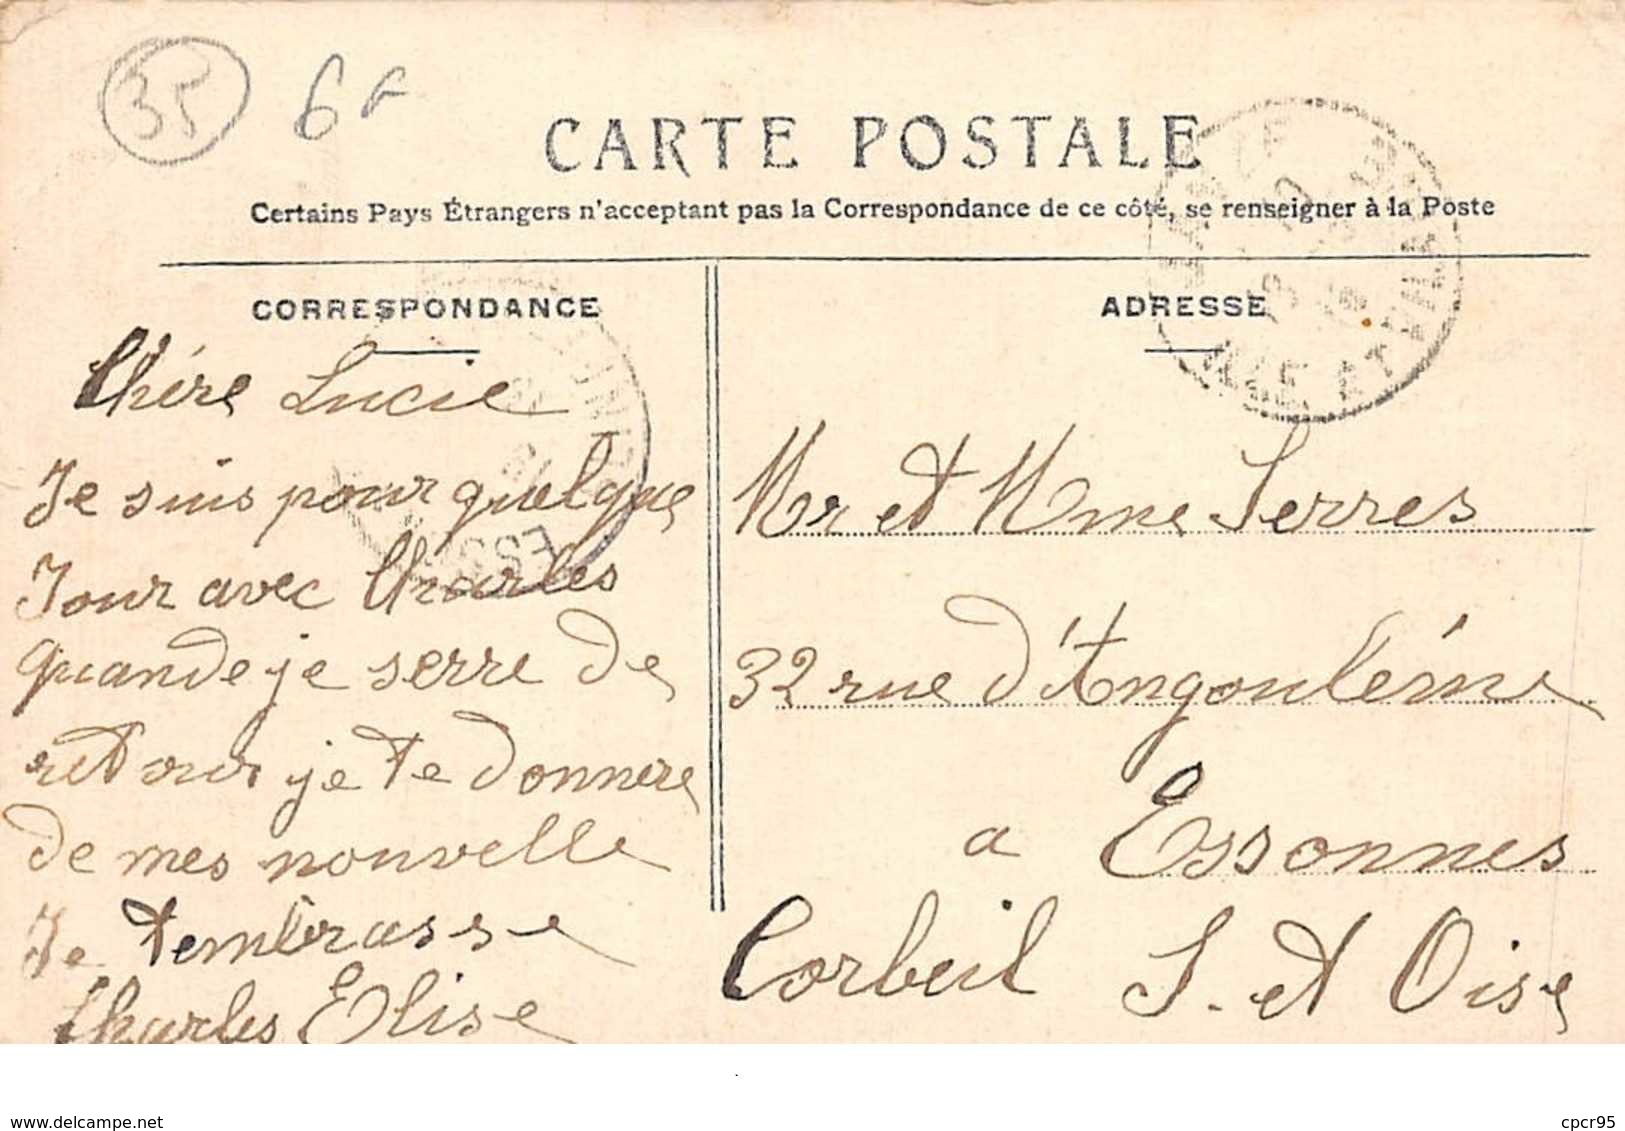 35 6F
CARTE POSTALE
Certains Pays Étrangers n'acceptant pas la Correspondance de ce côté, se renseigner à la Poste
CORRESPONDANCE
Chére Lucie
Je suis pour quelque
Jour avec Charles
quande je serre de
retour je te donnere
de mes nouvelle
Je tembrasse
Charles Elise
ADRESSE
Mr et Mme Serres
32 rue d'Angouléme
a Essonnes
Corbeil S. et Oise
ILLE ET VILAINE
ESS
www.delcampe.net
cpcr95